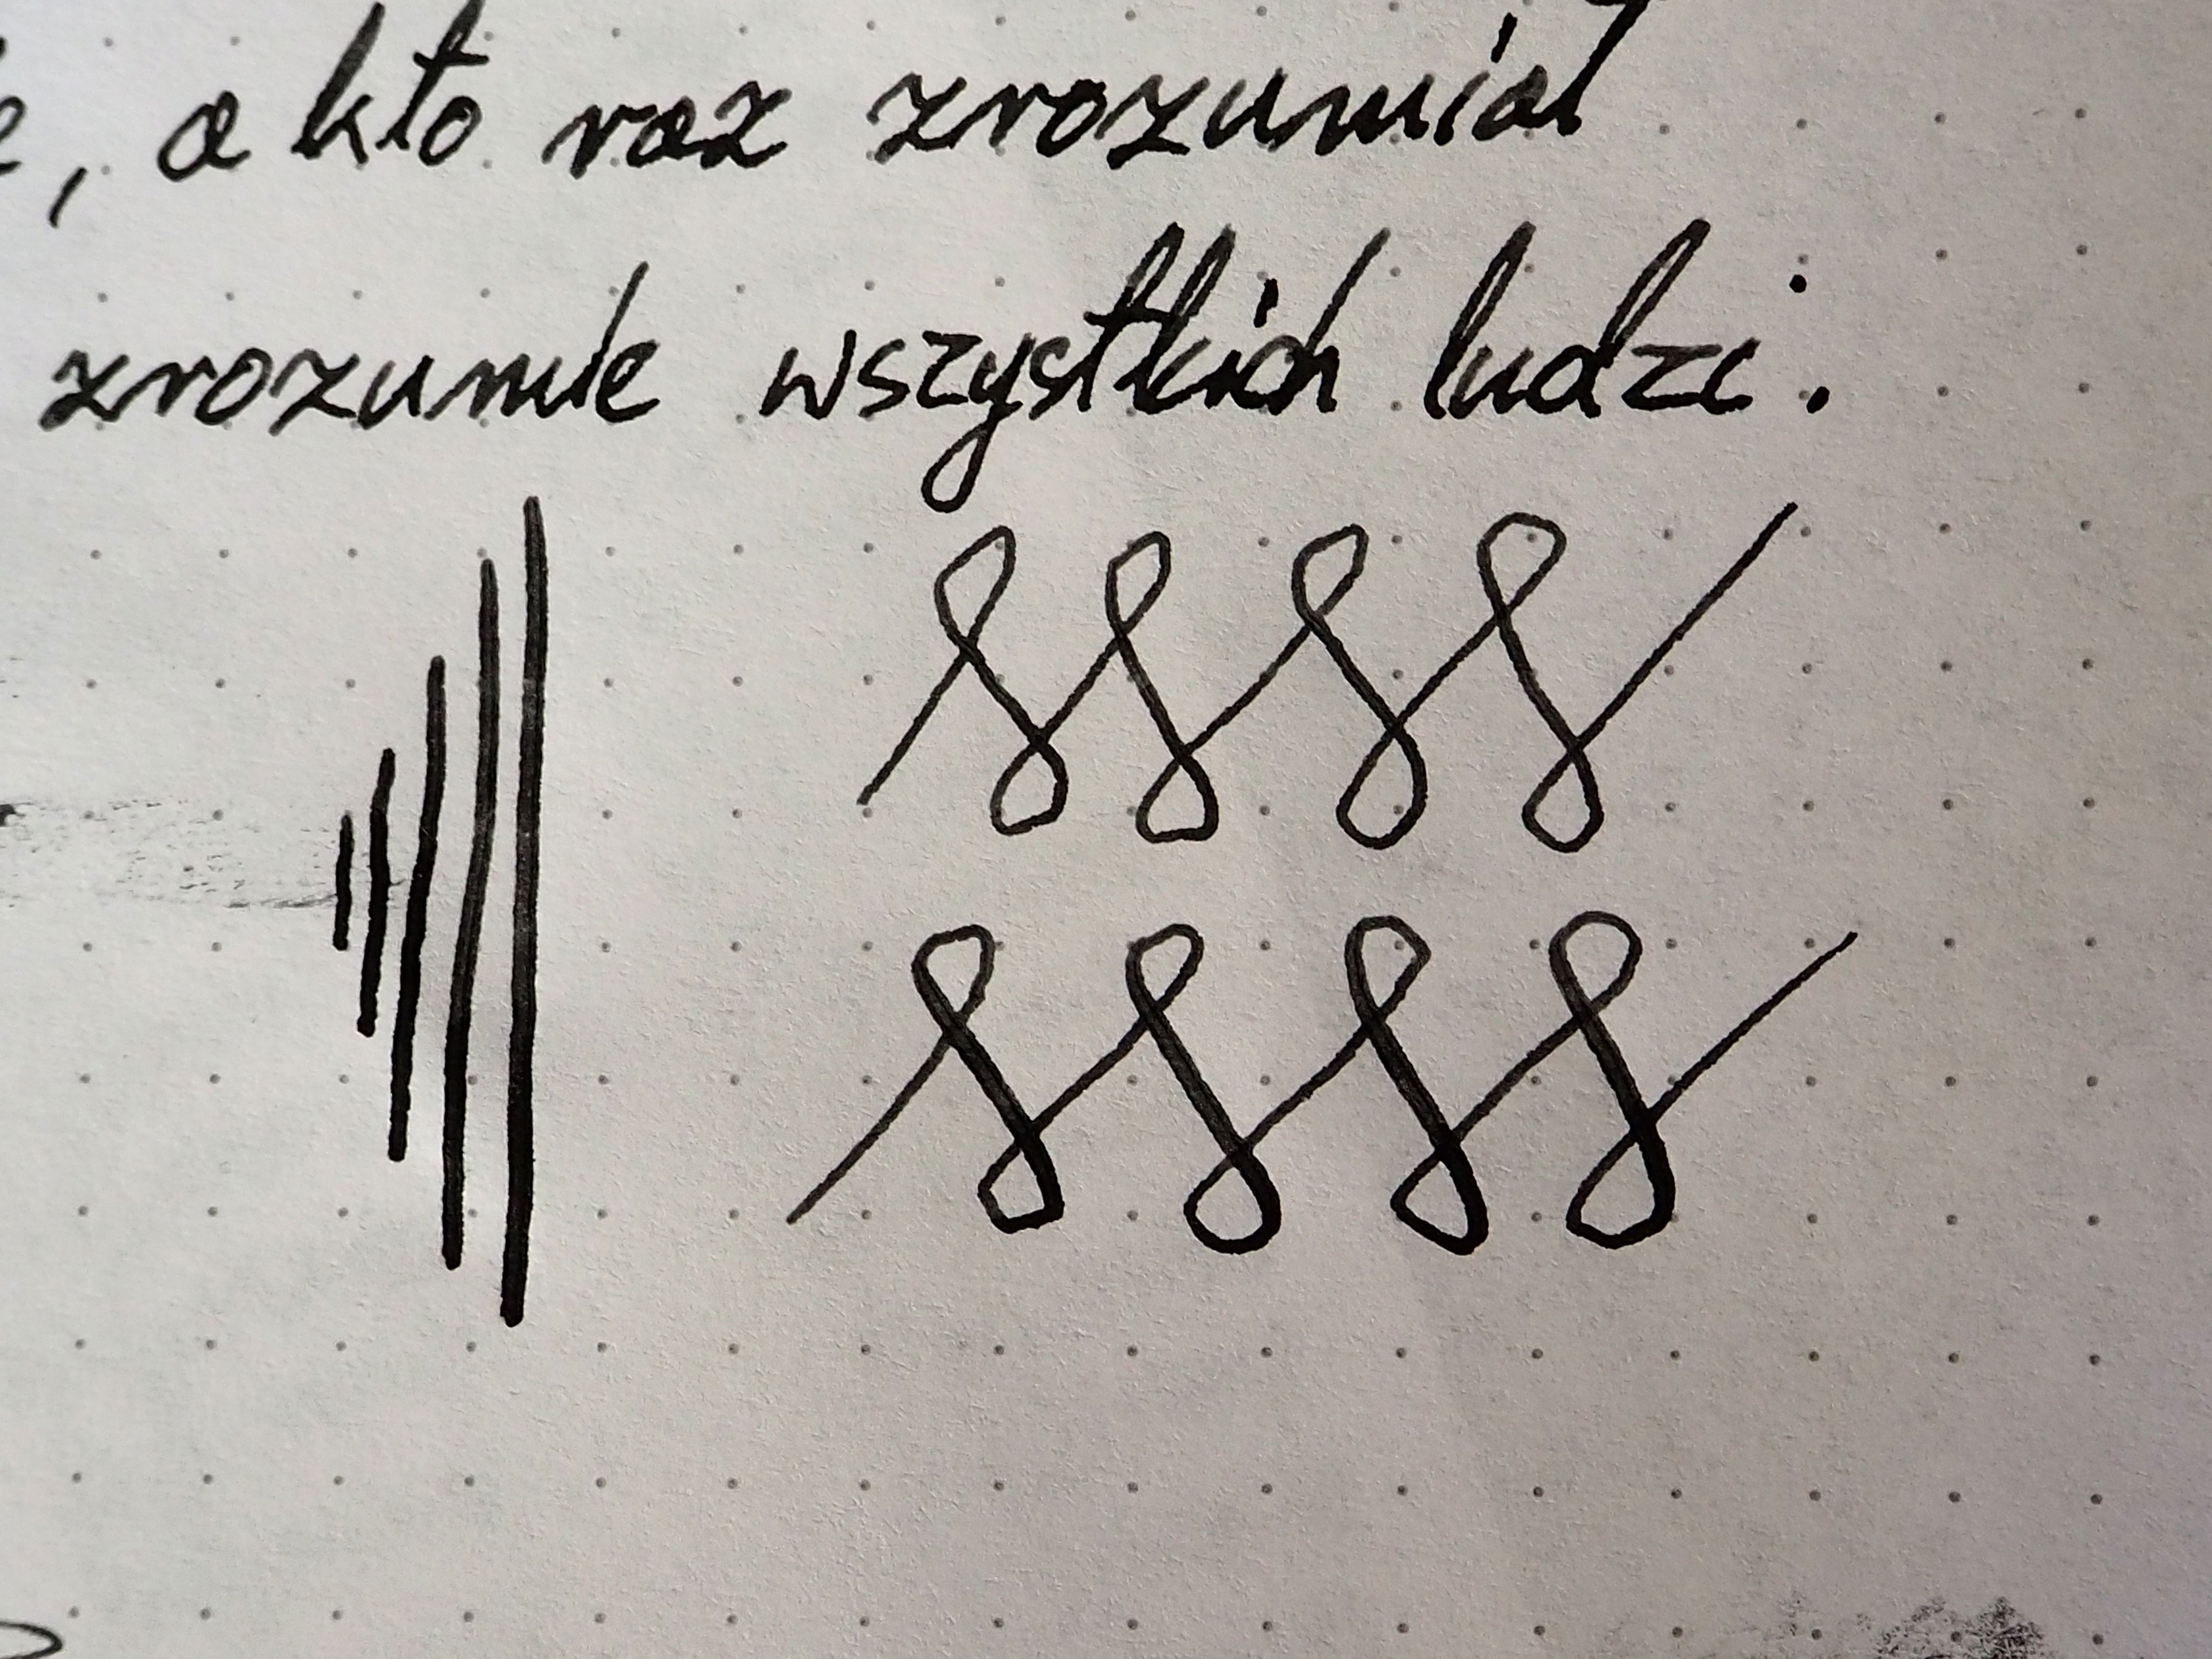 , a kto raz zrozumiał
zrozumie wszystkich ludzi.